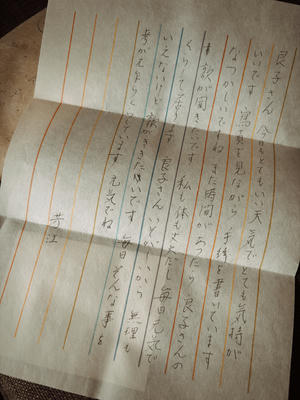 良子さん 今日もとてもいい天気でとても気持が
いいです 写真を見ながら 手紙を書いています
なつかしいですね また時間があったら 良子さんの
歌が聞きたいです 私も体も元気だし毎日元気で
くらしております 良子さんいそがしいから 無理も
いえないけど 歌がききたいです 毎日そんな事を
考がえながらくらしています 元気でね
芳江